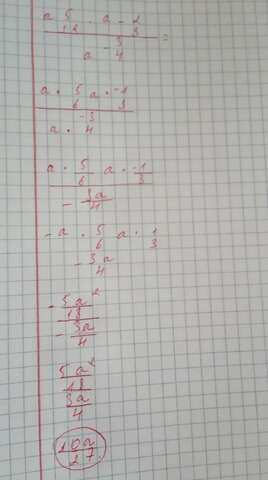 a 5/12 · a - 2/3
―――――――― =
a - 3/4
a · 5/6 a · -1/3
――――――――
a · -3/4
a · 5/6 a · -1/3
――――――――
- 3a/4
- a · 5/6 a · 1/3
- 3a/4
- 5a²/18
――――
- 3a/4
5a²/18
――――
3a/4
10a/27.